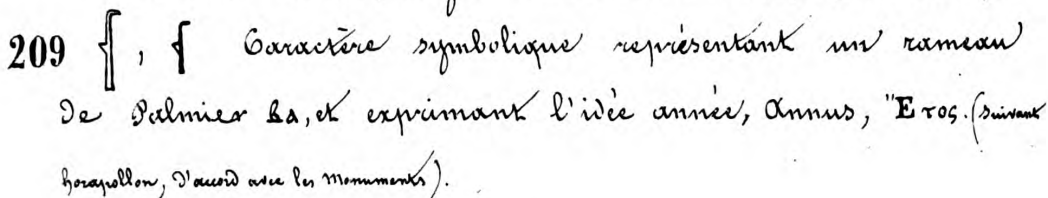 209 {, { Caractère symbolique représentant un rameau
de Palmier Ba, et exprimant l'idée année, Annus, Ἔτος. (suivant
horapollon, d'accord avec les monuments).